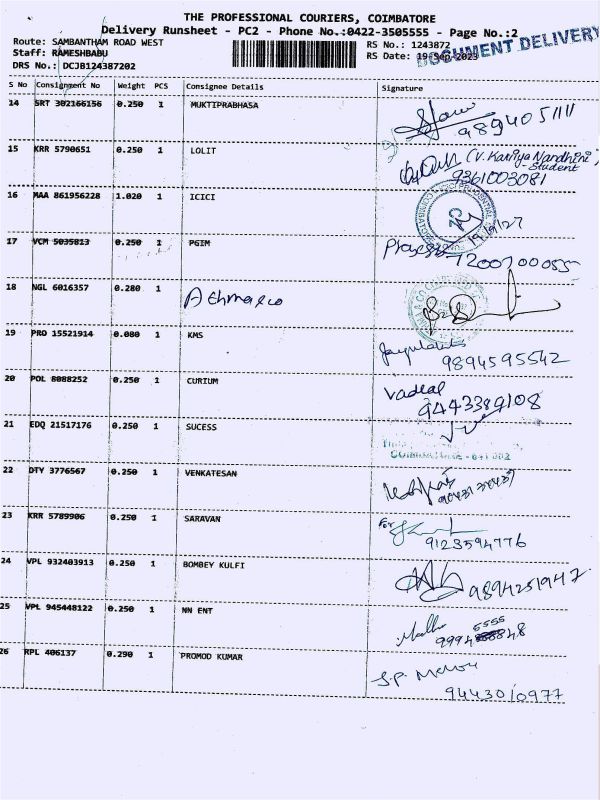 THE PROFESSIONAL COURIERS, COIMBATORE
Delivery Runsheet - PC2 - Phone No.:0422-3505555 - Page No.:2
Route: SAMBANTHAM ROAD WEST
RS No.: 1243872
DOCUMENT DELIVERY
Staff: RAMESHBABU
RS Date: 19-Sep-2023
DRS No.: DCJB124387202
S No Consignment No Weight PCS Consignee Details Signature
14 SRT 302166156 0.250 1 MUKTIPRABHASA
9894051111
15 KRR 5790651 0.250 1 LOLIT
(V. Kaviya Nandhini)
Student
9361003081
16 MAA 861956228 1.020 1 ICICI
17 VCM 5035813 0.250 1 PGIM
7200700055
18 NGL 6016357 0.280 1
19 PRO 15521914 0.080 1 KMS
9894595542
20 POL 8088252 0.250 1 CURIUM
Vadeal
9443389108
21 EDQ 21517176 0.250 1 SUCESS
COIMBATORE - 641 002
22 DTY 3776567 0.250 1 VENKATESAN
23 KRR 5789906 0.250 1 SARAVAN
For
9123594776
24 VPL 932403913 0.250 1 BOMBEY KULFI
9894251947
25 VPL 945448122 0.250 1 NN ENT
5555
26 RPL 406137 0.290 1 PROMOD KUMAR
9443010977